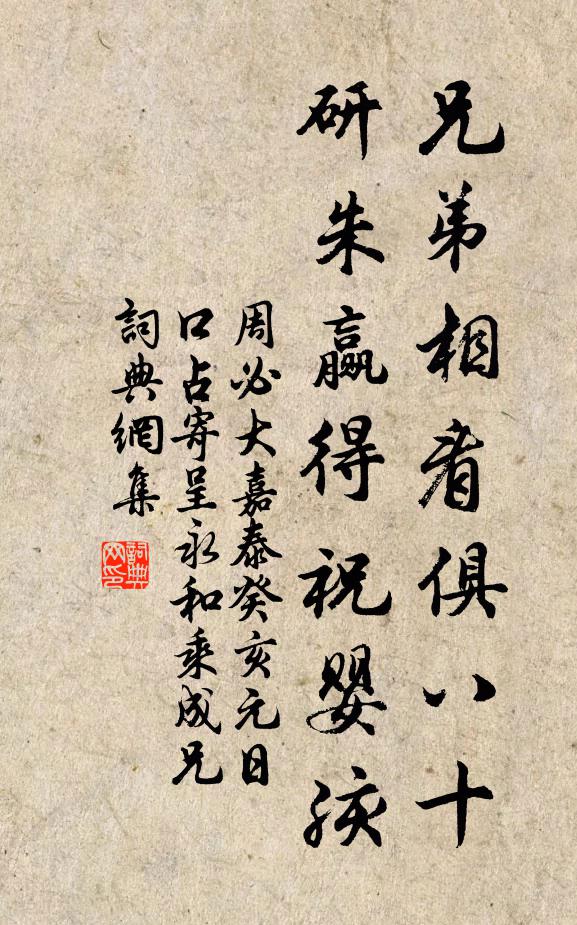 兄弟相看俱八十
研朱贏得祝嬰孩
周必大嘉泰癸亥元日
口占寄呈永和乘成兄
詞典網集
詞典网印